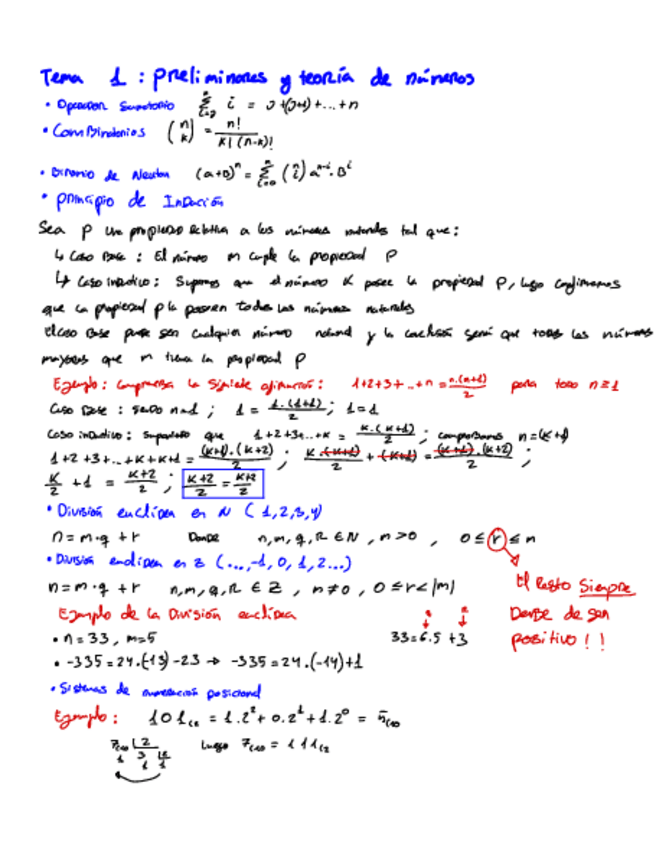 Tema 1 : preliminares y teoría de números
• Operador Sumatorio ∑ i = J+(J+1)+...+n
• Combinatorios (n k) = n! / k!(n-k)!
• Binomio de Newton (a+B)^n = ∑_{i=0}^{n} (n i) a^{n-i} · B^i
• principio de Inducción
Sea P una propiedad relativa a los números naturales tal que:
↳ Caso Base : El número m cumple la propiedad P
↳ Caso inductivo : Supomos que el número K posee la propiedad P, luego confirmamos
que la propiedad p la poseen todos los números naturales
El caso Base puede ser cualquier número natural y la conclusión será que todos los números
mayores que m tienen la propiedad P
Ejemplo : Comprueba la siguiente afirmación : 1+2+3+...+n = n·(n+1)/2 para todo n≥1
Caso Base : sendo n=1 ; 1 = 1·(1+1)/2 ; 1=1
Caso inductivo : supuesto que 1+2+3+...+K = K·(K+1)/2 ; comprobamos n=(K+1)
1+2+3+...+K+K+1 = (K+1)·(K+2)/2 ; K·(K+1)/2 + (K+1) = (K+1)·(K+2)/2 ;
K/2 + 1 = K+2/2 ; K+2/2 = K+2/2
• División euclídea en N ( 1,2,3,4)
n = m·q + r Donde n,m,q,R ∈ N , m>0 , 0≤r≤m
• División euclídea en Z (...,-1, 0, 1, 2...)
n = m·q + r n,m,q,R ∈ Z , m≠0 , 0≤r<|m|
El Resto Siempre
Debe de ser
positivo ! !
Ejemplo de la División euclídea
• n = 33 , m=5 33=6·5+3
• -335=24·(-13)-23 → -335=24·(-14)+1
• Sistemas de numeración posicional
Ejemplo : 101(2 = 1·2²+0·2¹+1·2⁰ = 5(10
7(10 2
1 3 2
1 1
Luego 7(10 = 111(2